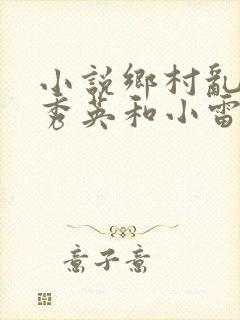 小說鄉村亂
秀英和小雷
意子意